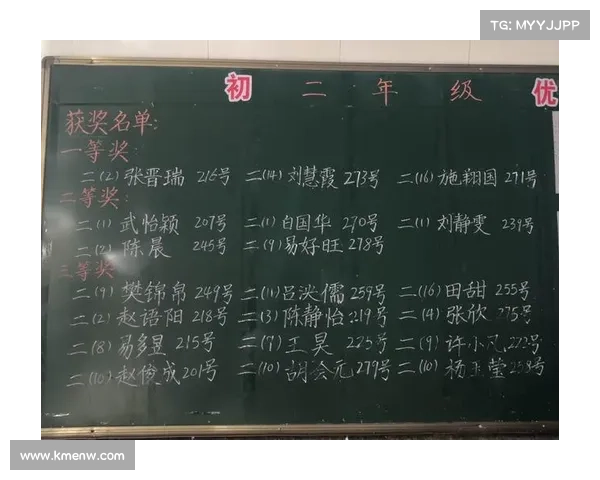 TG: MYYJJPP
初二年级优
获奖名单:
一等奖
二(2)张晋瑞 216号 二(14)刘慧霞 273号 二(16)施翔国 271号
二等奖:
二(1)武怡颖 207号 二(1)白国华 270号 二(1)刘静雯 239号
二(2)陈晨 245号 二(9)易好旺 278号
三等奖
二(9)樊锦帛 249号 二(11)吕洪儒 259号 二(16)田甜 255号
二(2)赵语阳 218号 二(3)陈静怡 219号 二(4)张欣 275号
二(8)易多昱 215号 二(7)王昊 225号 二(9)许小凡 272号
二(10)赵俊成 201号 二(10)胡会元 279号 二(10)杨玉莹 258号
www.kmenw.com